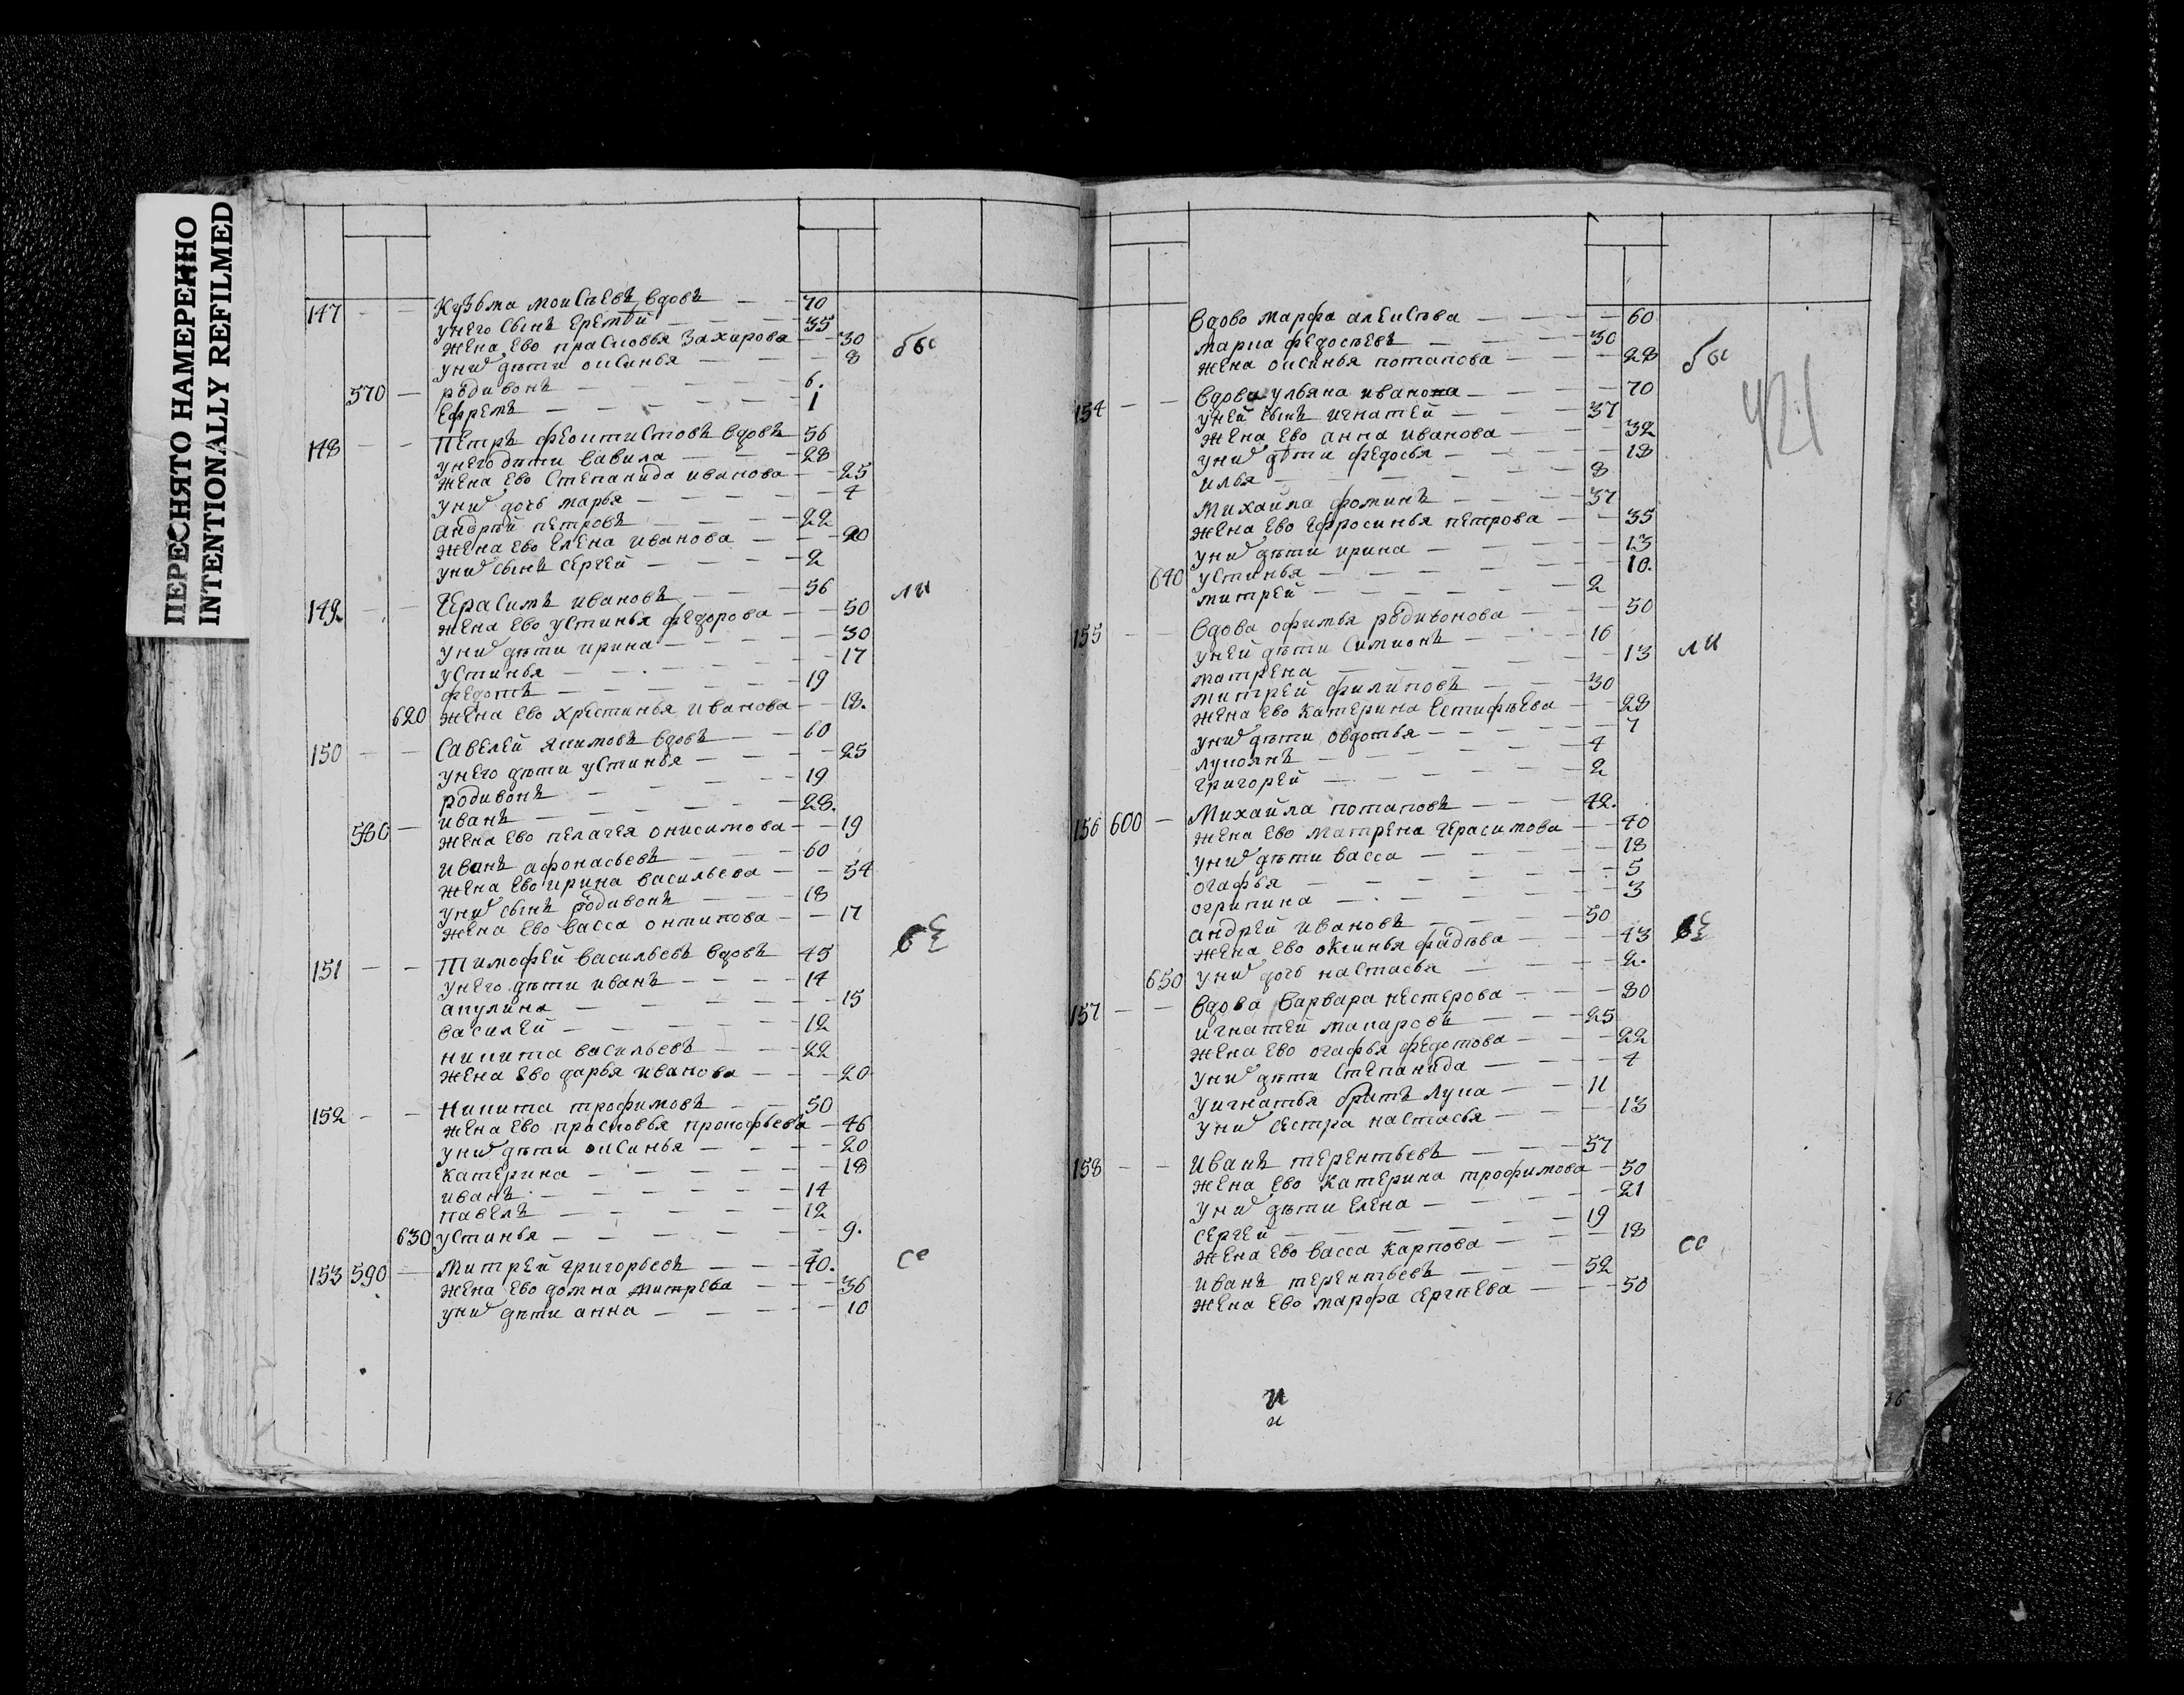 ПЕРЕСНЯТО НАМЕРЕННО
INTENTIONALLY REFILMED
147 — — Кузьма моисѣевъ вдовъ — — 70
унего сынъ еремѣй — — — 35
жена ево прасковья Захарова — — 30
уних дѣти оксинья — — — 8
бы
570 — родивонъ — — — — 6.
ефремъ — — — — — 1
148 — — Петръ феоктистовъ вдовъ 56
унего дѣти вавила — — — 28
жена ево Степанида иванова — — 25
уних дочь марья — — — — 4
андрѣй петровъ — — — 22
жена ево Елена иванова — — — 20
уних сынъ сергей — — — 2
149 — — Герасимъ ивановъ — — — 56
ли
жена ево устинья федорова — — — 50
уних дѣти ирина — — — 30
устинья — — — — — 17
федотъ — — — — — 19
620 жена ево христинья иванова — — 18.
150 — — Савелей якимовъ вдовъ — — 60
унего дѣти устинья — — — 25
родивонъ — — — — 19
иванъ — — — — — 28.
580 — жена ево пелагея онисимова — — 19
иванъ афонасьевъ — — — 60
жена ево ирина васильева — — — 54
уних сынъ родивонъ — — — 18
жена ево васса онтипова — — 17
151 — — Тимофей васильевъ вдовъ 45
унего дѣти иванъ — — — 14
акулина — — — — — 15
василей — — — — — 12
никита васильевъ — — — 22
жена ево дарья иванова — — — 20
152 — — Никита трофимовъ — — 50
жена ево прасковья прокофьева — 46
уних дѣти оксинья — — — 20
катерина — — — — — 18
иванъ — — — — — 14
павелъ — — — — — 12
630 устинья — — — — — 9.
153 590 — митрей григорьевъ — — 40.
се
жена ево домна митрева — — — 36
уних дѣти анна — — — — 10
421
вдова марфа алексѣева — — — — 60
марка федосѣевъ — — — 30
жена оксинья потапова — — — 28
бы
154 — — вдова ульяна ивановна — — — 70
уней сынъ игнатей — — — 37
жена ево анна иванова — — — 32
уних дѣти федосья — — — 18
илья — — — — — 8
Михайла фоминъ — — — 37
жена ево ефросинья петрова — — 35
уних дѣти ирина — — — — 13
640 устинья — — — — — 10.
митрей — — — — — 2
155 — — вдова офимья родивонова — — — 50
уней дѣти симионъ — — — 16
матрена — — — — — 13
ли
митрей филиповъ — — — 30
жена ево катерина естифѣева — — 28
уних дѣти овдотья — — — — 7
лукоянъ — — — — — 4
григорей — — — — — 2
156 600 — Михайла потаповъ — — — 42.
жена ево матрена герасимова — — 40
уних дѣти васса — — — — 18
огафья — — — — — 5
огрипина — — — — — 3
андрей ивановъ — — — 50
жена ево оксинья фадѣева — — — 43
650 уних дочь настасья — — — — 2.
157 — — вдова варвара нестерова — — — 80
игнатей макаровъ — — — 25
жена ево огафья федотова — — — 22
уних дѣти степанида — — — 4
уигнатья братъ лука — — — 11
уних сестра настасья — — — 13
158 — — иванъ терентьевъ — — — 57
жена ево катерина трофимова — 50
уних дѣти елена — — — — 21
сергей — — — — — 19
жена ево васса карпова — — — 18
се
иванъ терентьевъ — — — 52
жена ево марфа сергѣева — — — 50
и
и